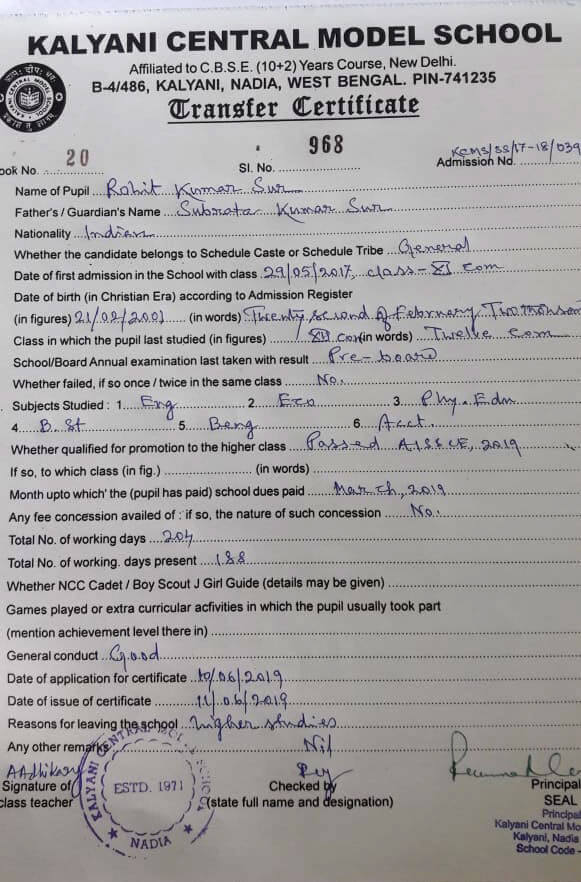 KALYANI CENTRAL MODEL SCHOOL
Affiliated to C.B.S.E. (10+2) Years Course, New Delhi.
B-4/486, KALYANI, NADIA, WEST BENGAL. PIN-741235
Transfer Certificate
ook No. 20 Sl. No. 968 Admission No. KCMS/SS/17-18/039
Name of Pupil Rohit Kumar Sur
Father's / Guardian's Name Subrata Kumar Sur
Nationality Indian
Whether the candidate belongs to Schedule Caste or Schedule Tribe General
Date of first admission in the School with class 29/05/2017, class-XI com
Date of birth (in Christian Era) according to Admission Register
(in figures) (in words) Twenty second of February Two thousan
Class in which the pupil last studied (in figures) XII com (in words) Twelve com
School/Board Annual examination last taken with result Pre-board
Whether failed, if so once / twice in the same class No.
. Subjects Studied : 1. Eng 2. Eco 3. Phy. Edn
4. B.St 5. Beng 6. Acct.
Whether qualified for promotion to the higher class Passed AISSCE, 2019
If so, to which class (in fig.) (in words)
Month upto which' the (pupil has paid) school dues paid March, 2019
Any fee concession availed of : if so, the nature of such concession No.
Total No. of working days 204
Total No. of working. days present 188
Whether NCC Cadet / Boy Scout J Girl Guide (details may be given)
Games played or extra curricular acfivities in which the pupil usually took part
(mention achievement level there in)
General conduct Good
Date of application for certificate 10/06/2019
Date of issue of certificate 11/06/2019
Reasons for leaving the school Higher studies
Any other remarks Nil
AAdhikary
Signature of Checked by Principal
class teacher (state full name and designation) SEAL
KALYANI CENTRAL MODEL SCHOOL
ESTD. 1971
NADIA
Principal
Kalyani Central Mo
Kalyani, Nadia
School Code -